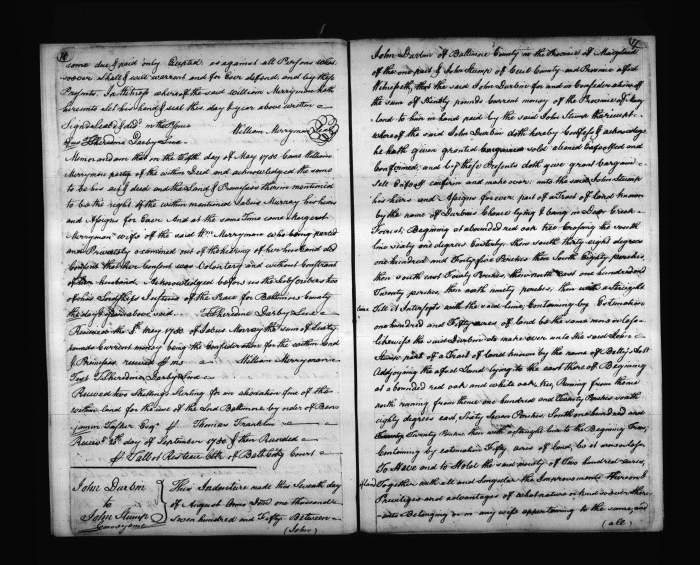 some due & paid only Excepted as against all Persons what
soever Shall & will warrant and for Ever defend and by these
Presents In Witness whereof the said William Merryman hath
hereunto set his hand & seal this day & year above written
Signd Seald & deld in the Prsns
of us T Sheredine Darby Lux William Merryman Seal
Memorandum that on the day of May 1750 Came William
Merryman party of the within Deed and acknowledged the same
to be his act & deed and the Land & Premisses therein mentioned
to be the right of the within mentioned Jabus Murray his heirs
and Assigns for Ever And at the same Time came Margaret
Merryman wife of the said Wm Merryman who being parted
and Privately Examined out of the hearing of her husband did
Confess that her Consent was Voluntary and without Constraint
of her husband. Acknowledged before us the Subscribers two
of his Lordships Justices of the Peace for Baltimore County
the day & year above said T Sheredine Darby Lux
Received the May 1750 of Jabus Murray the sum of Sixty
pounds Current money being the Consideration for the within Land
& Premises received me William Merryman
Test T Sheredine Darby Lux
Received two Shillings Sterling for an alienation fine of the
within land for the use of the Lord Baltimore by order of Benj
jamin Tasker Esqr Thomas Franklin
Receivd 26th day of September 1750 & then Recorded
Talbot Risteau Clk of Balt. Coty Court
John Durbin
to
John Stump
Conveyance
This Indenture made this Seventh day
of August Anno Dom one thousand
seven hundred and Fifty Between
(John)
John Durbin of Baltimore County in the Province of Maryland
of the one part & John Stump of Cecil County and Province afsd
Witnesseth, that the said John Durbin for and in Consideration of
the sum of pounds Current money of the Province of Mary
land to him in hand paid by the said John Stump the receipt
whereof the said John Durbin doth hereby Confess & acknowledge
he hath given granted Bargained sold aliened Enfeoffed and
Confirmed, and by these Presents doth give grant Bargain
Sell Enfeoff confirm and make over unto the said John Stump
his heirs and Assigns for ever part of a Tract of land known
by the name of Durbins Chance lying & being in Deer Creek
Forrest, Begining at a bounded red oak tree
line Sixty one degrees Easterly then South thirty eight degrees
one hundred and Forty five Perches then South Eighty perches,
then South east Twenty Perches then north east one hundred and
Twenty perches, then north ninety perches, then with a straight
line Till it Intersects with the said line, Containing by Estimation
one hundred and Fifty acres of land be the same more or less
likewise the said Durbin do make over unto the said
Stump part of a Tract of land known by the name of Bettys Lott
Adjoyning the afsd Land lying to the east there of Begining
at a bounded red oak and white oak tree, Runing from thence
north runing from thence one hundred and Twenty Perches south
eighty degrees east, Sixty Seven Perches, South one hundred and
Twenty Perches then with a straight line to the Begining Tree,
Containing by estimation Fifty acres of land, be it more or less
To Have and to Hold the said of Two hundred acres,
of land Together with all and Singular the Improvements thereon &
Priviledges and advantages of what nature or kind soever there
unto Belonging or in any wise appertaining to the same, and
(all)